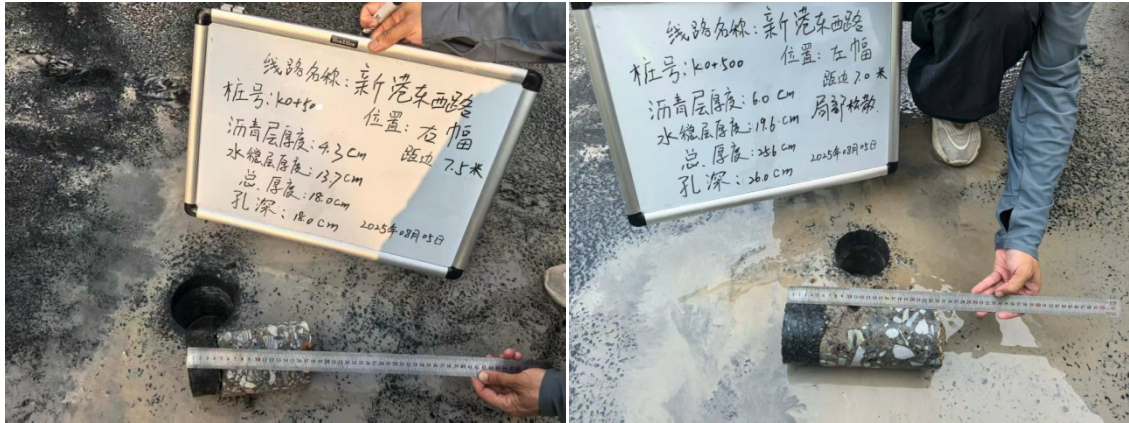 线路名称：新港东西路
桩号：K0+50
位置：右幅
沥青层厚度：4.3cm
距边7.5米
水稳层厚度：13.7cm
总厚度：18.0cm
孔深：18.0cm
2025年08月05日
线路名称：新港东西路
桩号：K0+500
位置：左幅
距边7.0米
沥青层厚度：6.0cm
局部松散
水稳层厚度：19.6cm
总厚度：25.6cm
2025年08月05日
孔深：26.0cm